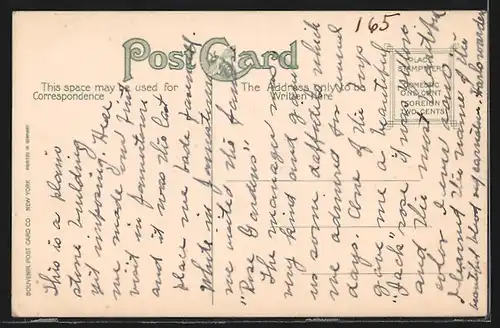 165
Post Card
This space may be used for
Correspondence
The Address only to be
Written here
PLACE
STAMP HERE
DOMESTIC
ONE CENT
FOREIGN
TWO CENTS
SOUVENIR POST CARD CO. NEW YORK PRINTED IN GERMANY
This is a plain
stone building
yet imposing. Here
we made our first
visit in Jamestown
and it was the last
place we bade farewell.
While in Jamestown
we visited the famous
"Rose Gardens"
The manager was
very kind and gave
us some daffodils which
we admired for several
days. One of the boys
give me a beautiful
"Jack" rose it was a
and the most
color I ever saw
I learned the name of the
beautiful